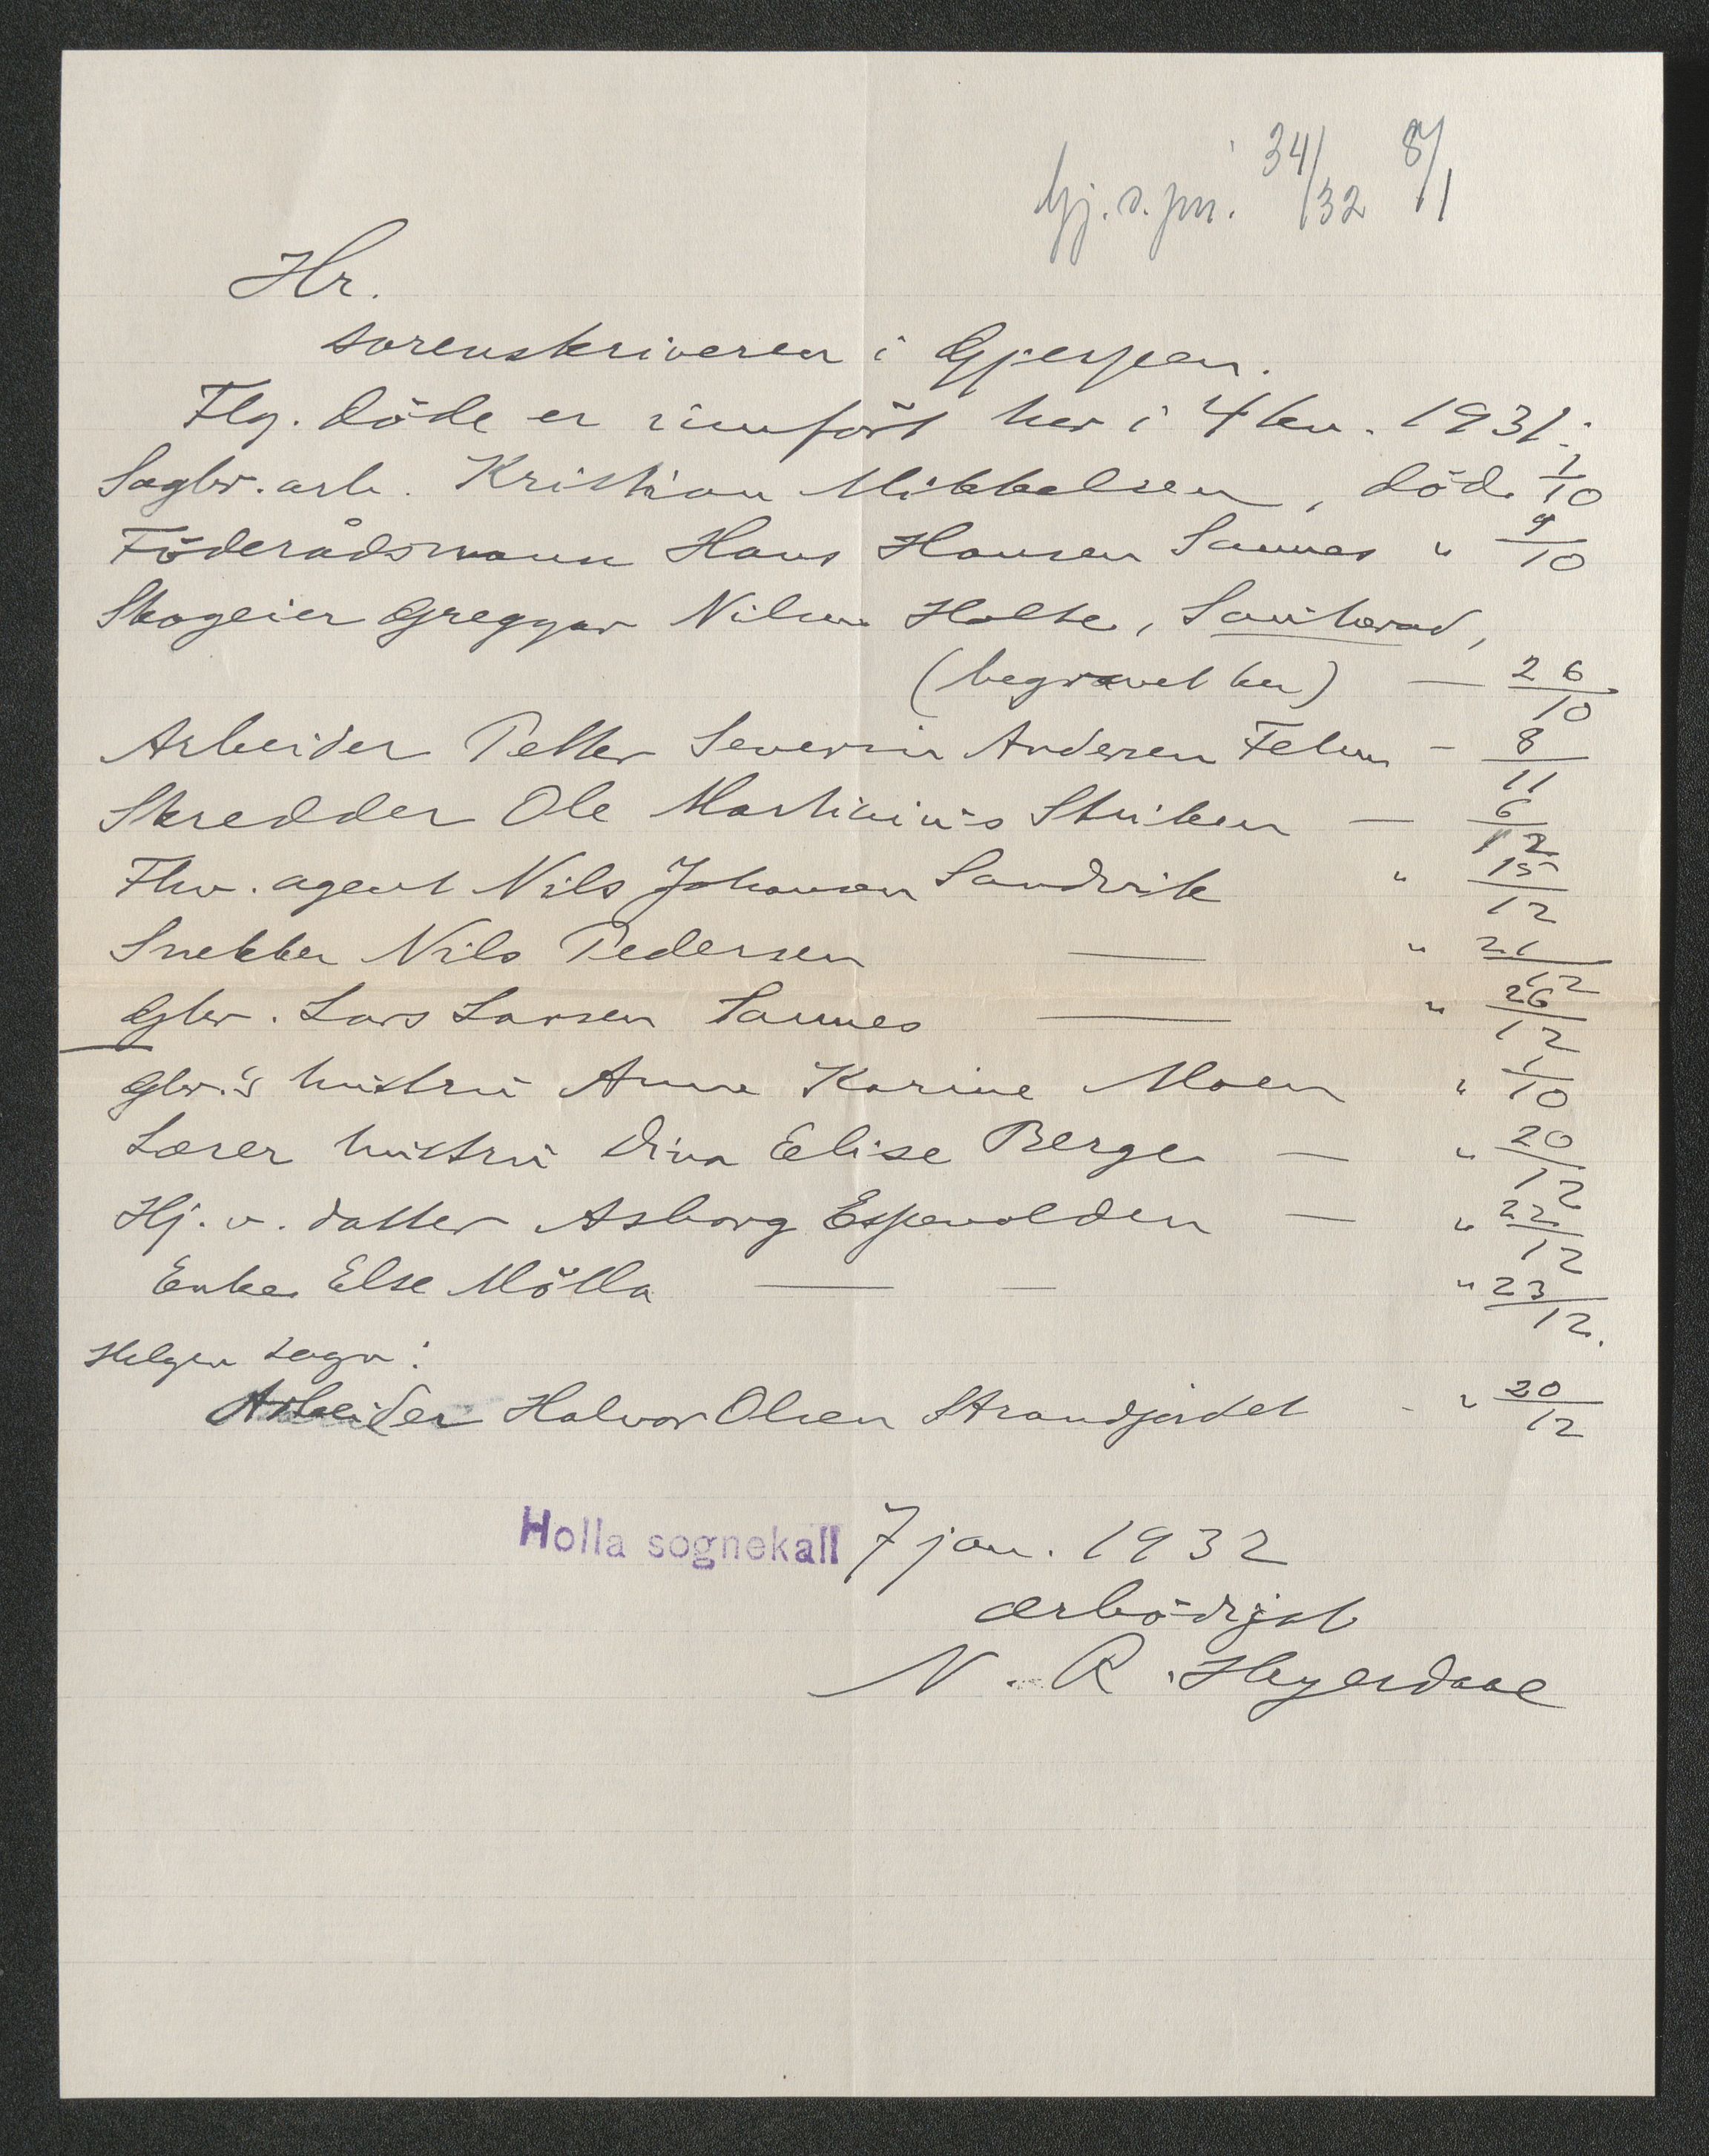 Gj. s. jnr. 34/32 8/1
Hr.
sorenskriveren i Gjerpen.
Flg. döde er innfört her i 4 kv. 1931:
Sagbr. arb. Kristian Mikkelsen, död. 1/10
Föderådsmann Hans Hansen Sannes " 9/10
Skogeier Greggar Nilsen Holte, Sauherad,
(begravet her) — 26/10
Arbeider Petter Severin Andersen Felen - 8/11
Skredder Ole Martinius Stuiken — 6/12
Fhv. agent Nils Johansen Sandvik " 15/12
Snekker Nils Pedersen — " 21/12
Gbr. Lars Larsen Sannes — " 26/12
Gbr.'s hustru Anne Karine Moen " 1/10
Lærer hustru Dina Elise Berge — " 20/12
Hj. v. datter Asborg Espevolden — " 22/12
Enke Else Mölla — — " 23/12.
Helgen sogn:
Arbeider Halvor Olsen Strandjordet - " 20/12
Holla sognekall 7 jan. 1932
ærbödigst
N. R. Heyerdahl